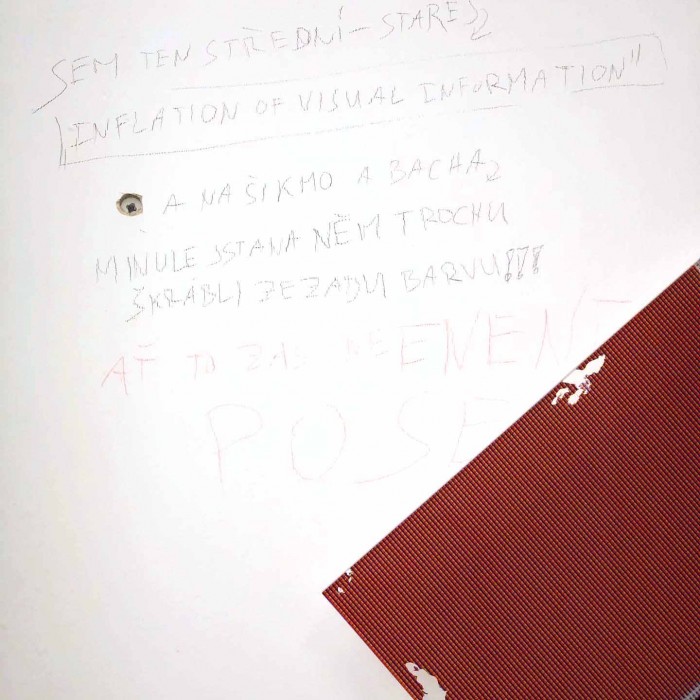 SEM TEN STŘEDNÍ - STAREJ
INFLATION OF VISUAL INFORMATION"
A NA ŠIKMO A BACHA
MINULE JSTA NA NĚM TROCHU
ŠKRÁBLI ZEZADU BARVU!!!
AŤ TO ZAS NENÍ
POSE